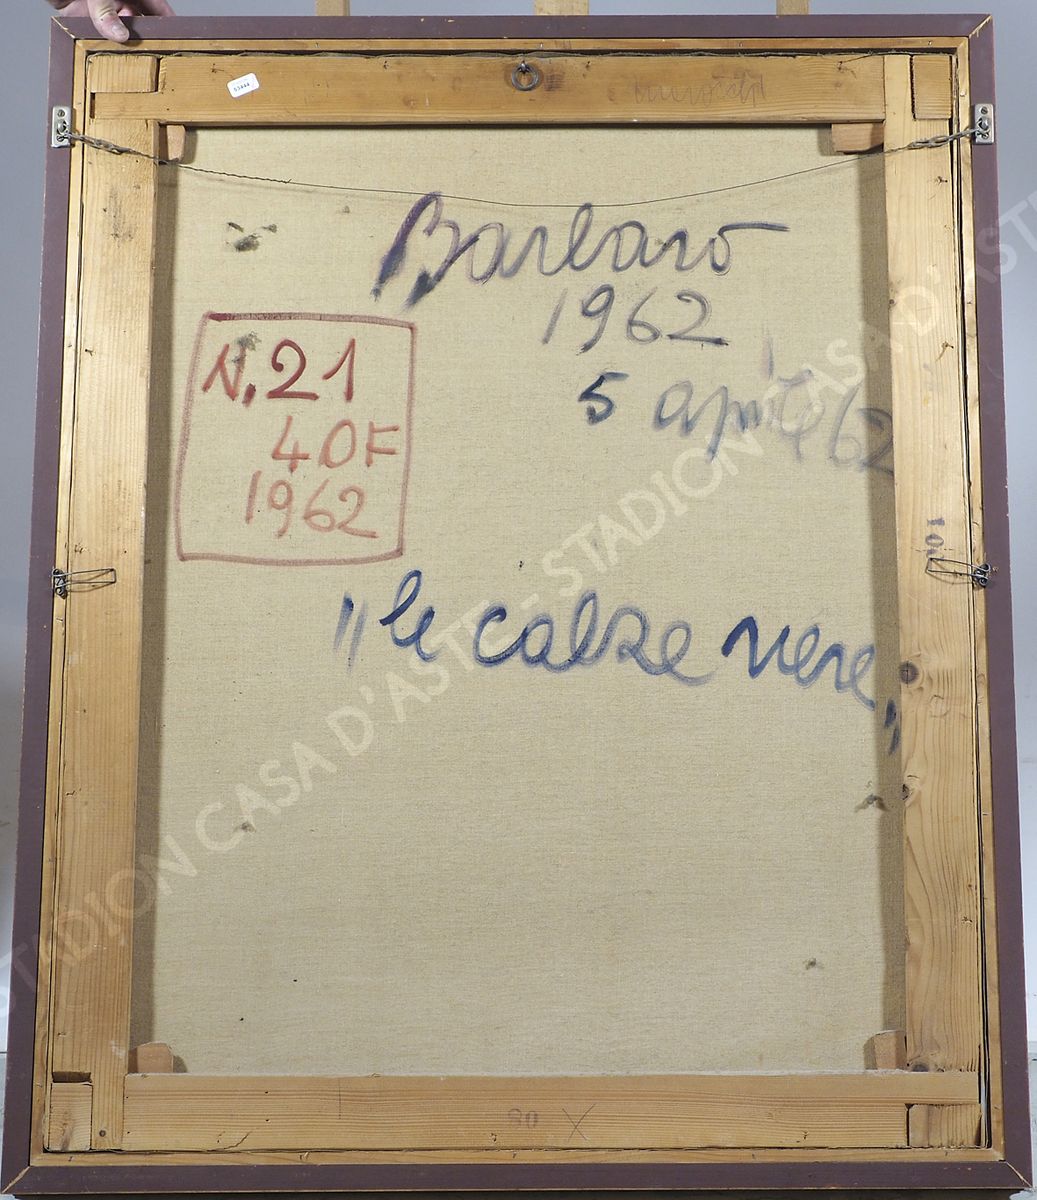 53444
Barbaro
1962
5 aprile 62
N. 21
40F
1962
"le calze nere"
100
80 X
STADION CASA D'ASTE - STADION CASA D'ASTE